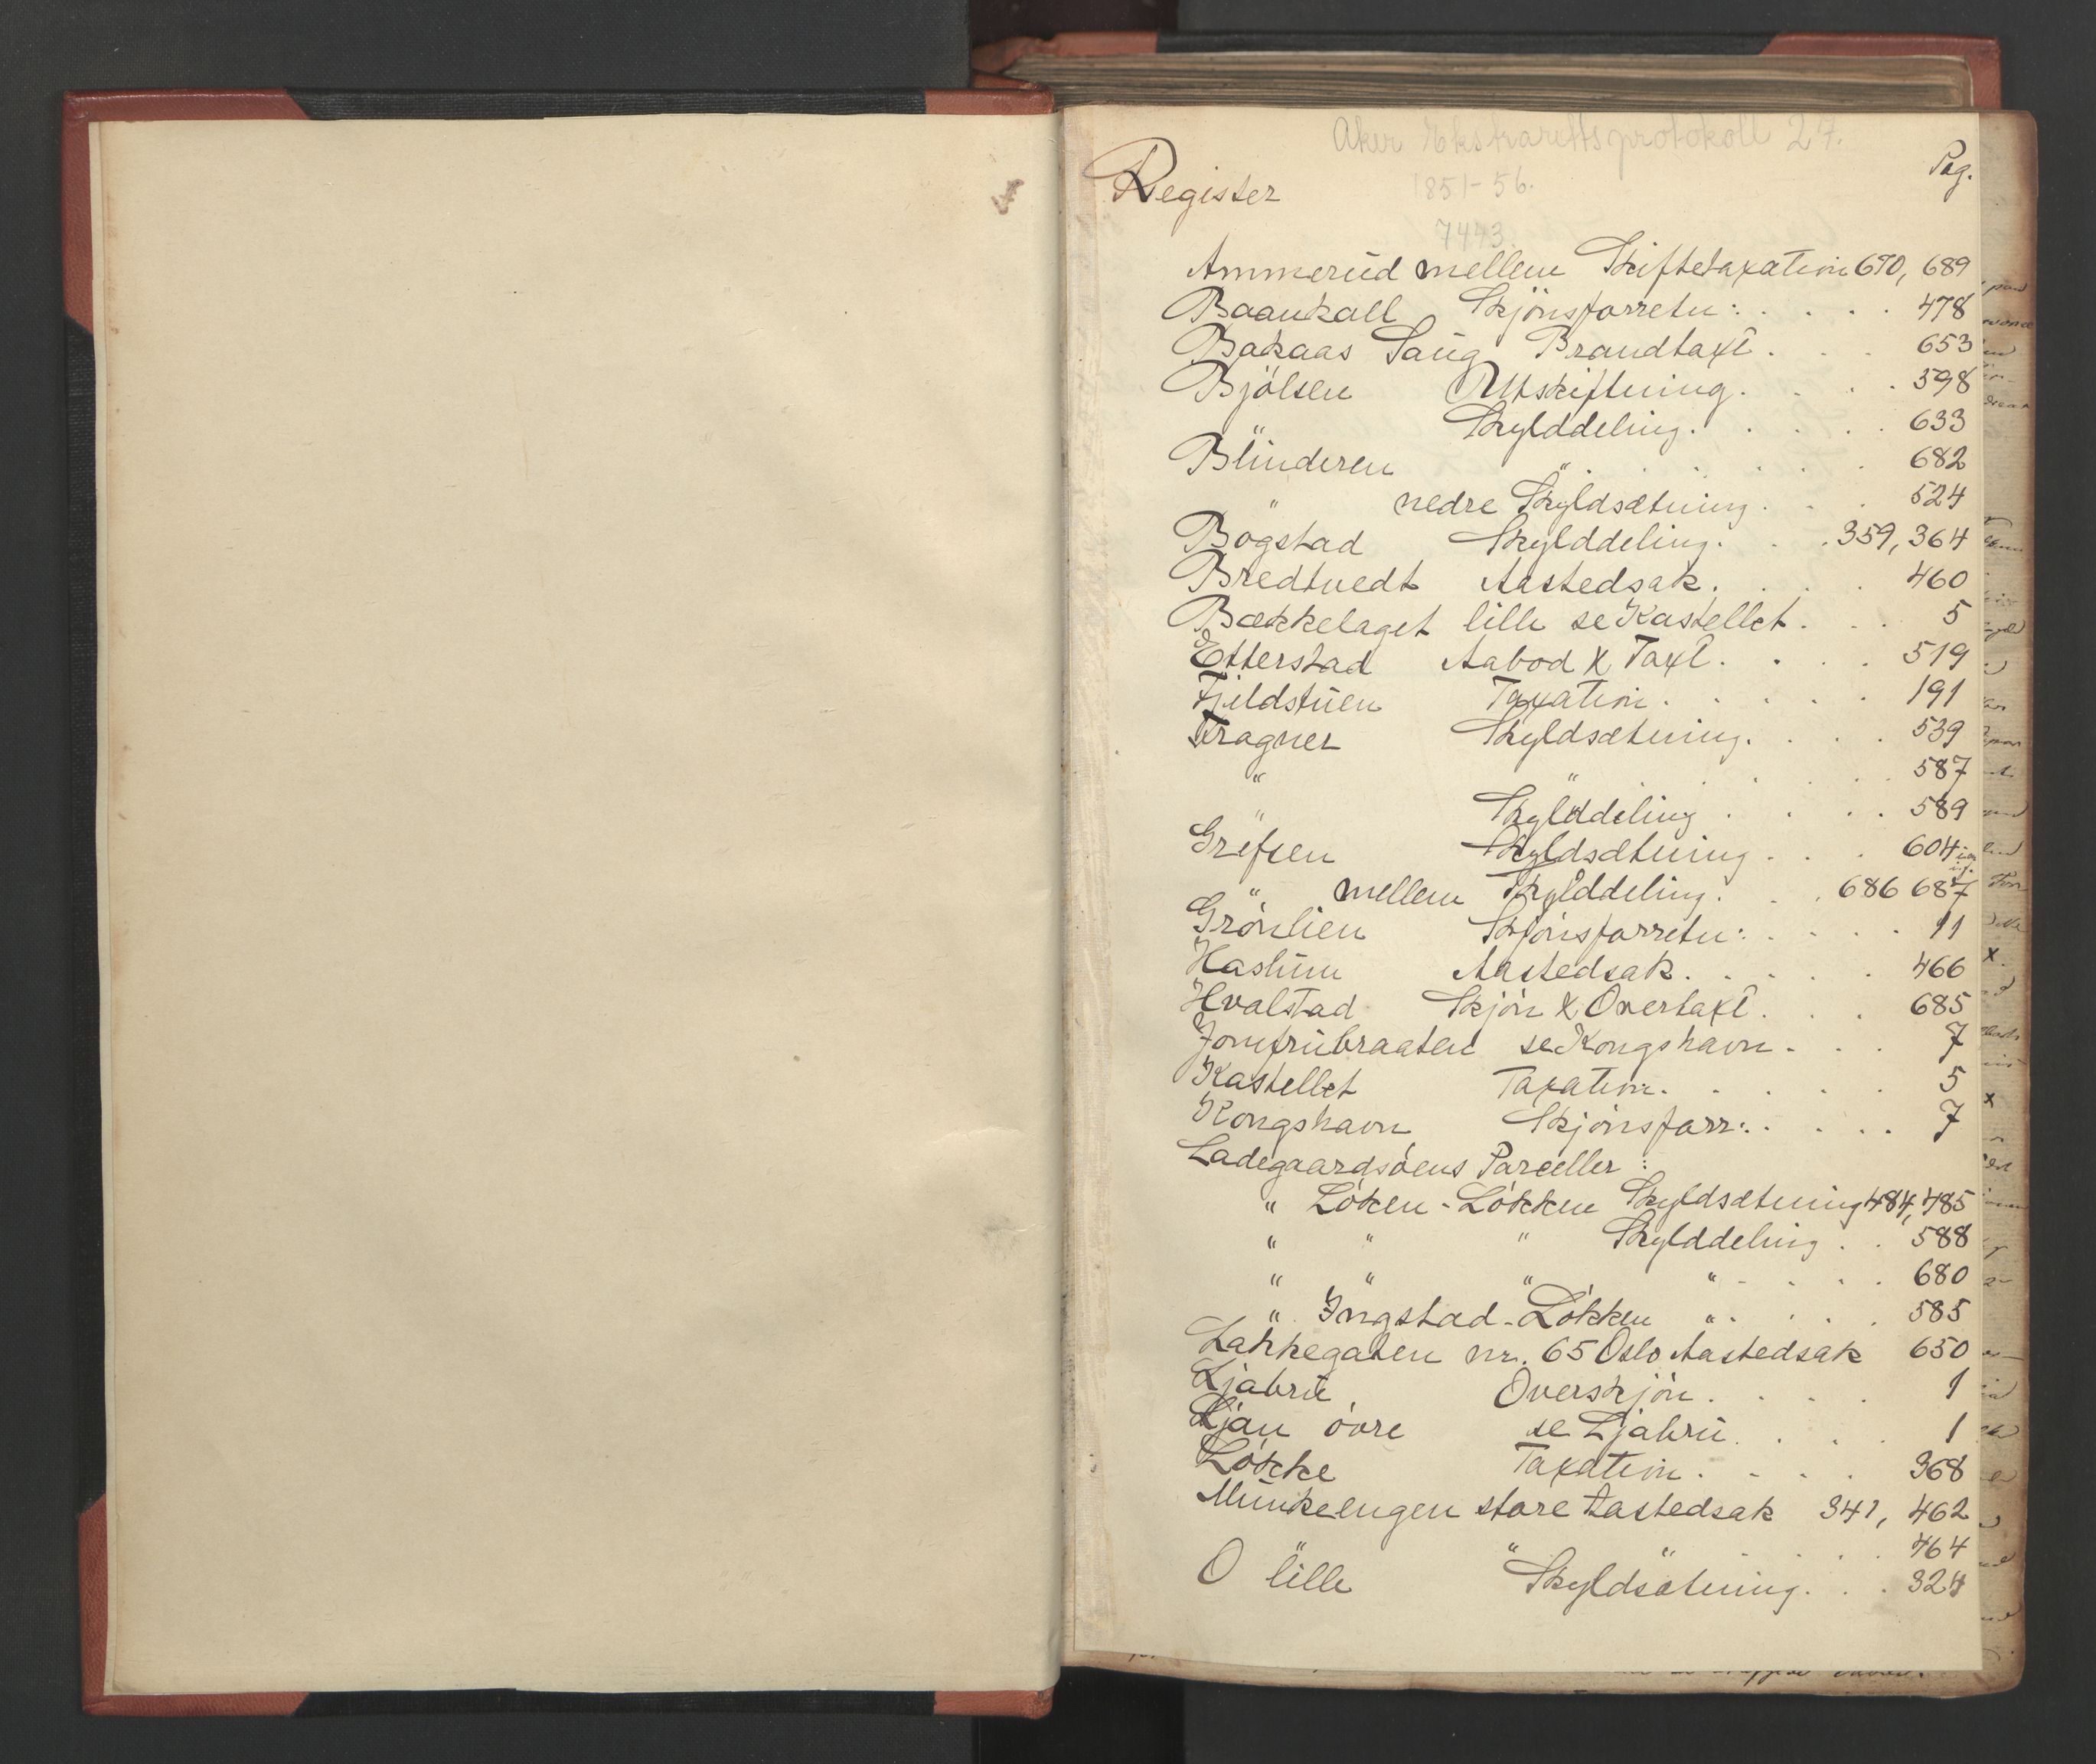 Aker Ekstrarettsprotokoll 27.
1851-56.
7443.
Register Pag.
Ammerud mellem Skiftetaxation 670, 689
Baankall Skjönsforretn: . . . . 478
Bakaas Saug Brandtaxt . . . 653
Bjölsen Utskiftning . . . 598
" Skylddeling . . . . . 633
Blinderen " . . . . . . 682
" nedre Skyldsætning . . . 524
Bogstad Skylddeling . . . 359, 364
Bredtvedt Aastedsak . . . . 460
Bækkelaget lille se Kastellet . . . 5
Etterstad Aabod & Taxt . . . . 519
Fjeldstuen Taxation . . . . . 191
Frogner Skyldsætning . . . . 539
" " . . . . . 587
" Skylddeling . . . . 589
Grefsen Skyldsætning . . . 604
" mellem Skylddeling . . . 686 687
Grönlien Skjönsforretn: . . . . 11
Haslum Aastedsak . . . . . 466
Hvalstad Skjön & Overtaxt . . . 685
Jomfrubraaten se Kongshavn . . . 7
Kastellet Taxation . . . . . 5
Kongshavn Skjönsforr: . . . . 7
Ladegaardsöens Parceller :
" Löken-Lökken Skyldsætning 484, 485
" " " Skylddeling . . 588
" " " " . . . . 680
" Ingstad-Lökken " . . . . 585
Lakkegaten nr. 65 Oslo Aastedsak 650
Ljabru Overskjön . . . . 1
Ljan övre se Ljabru . . . . 1
Lökke Taxation . . . . 368
Munkeengen store Aastedsak 341, 462
" " " . . . 464
O lille Skyldsætning . . . 324